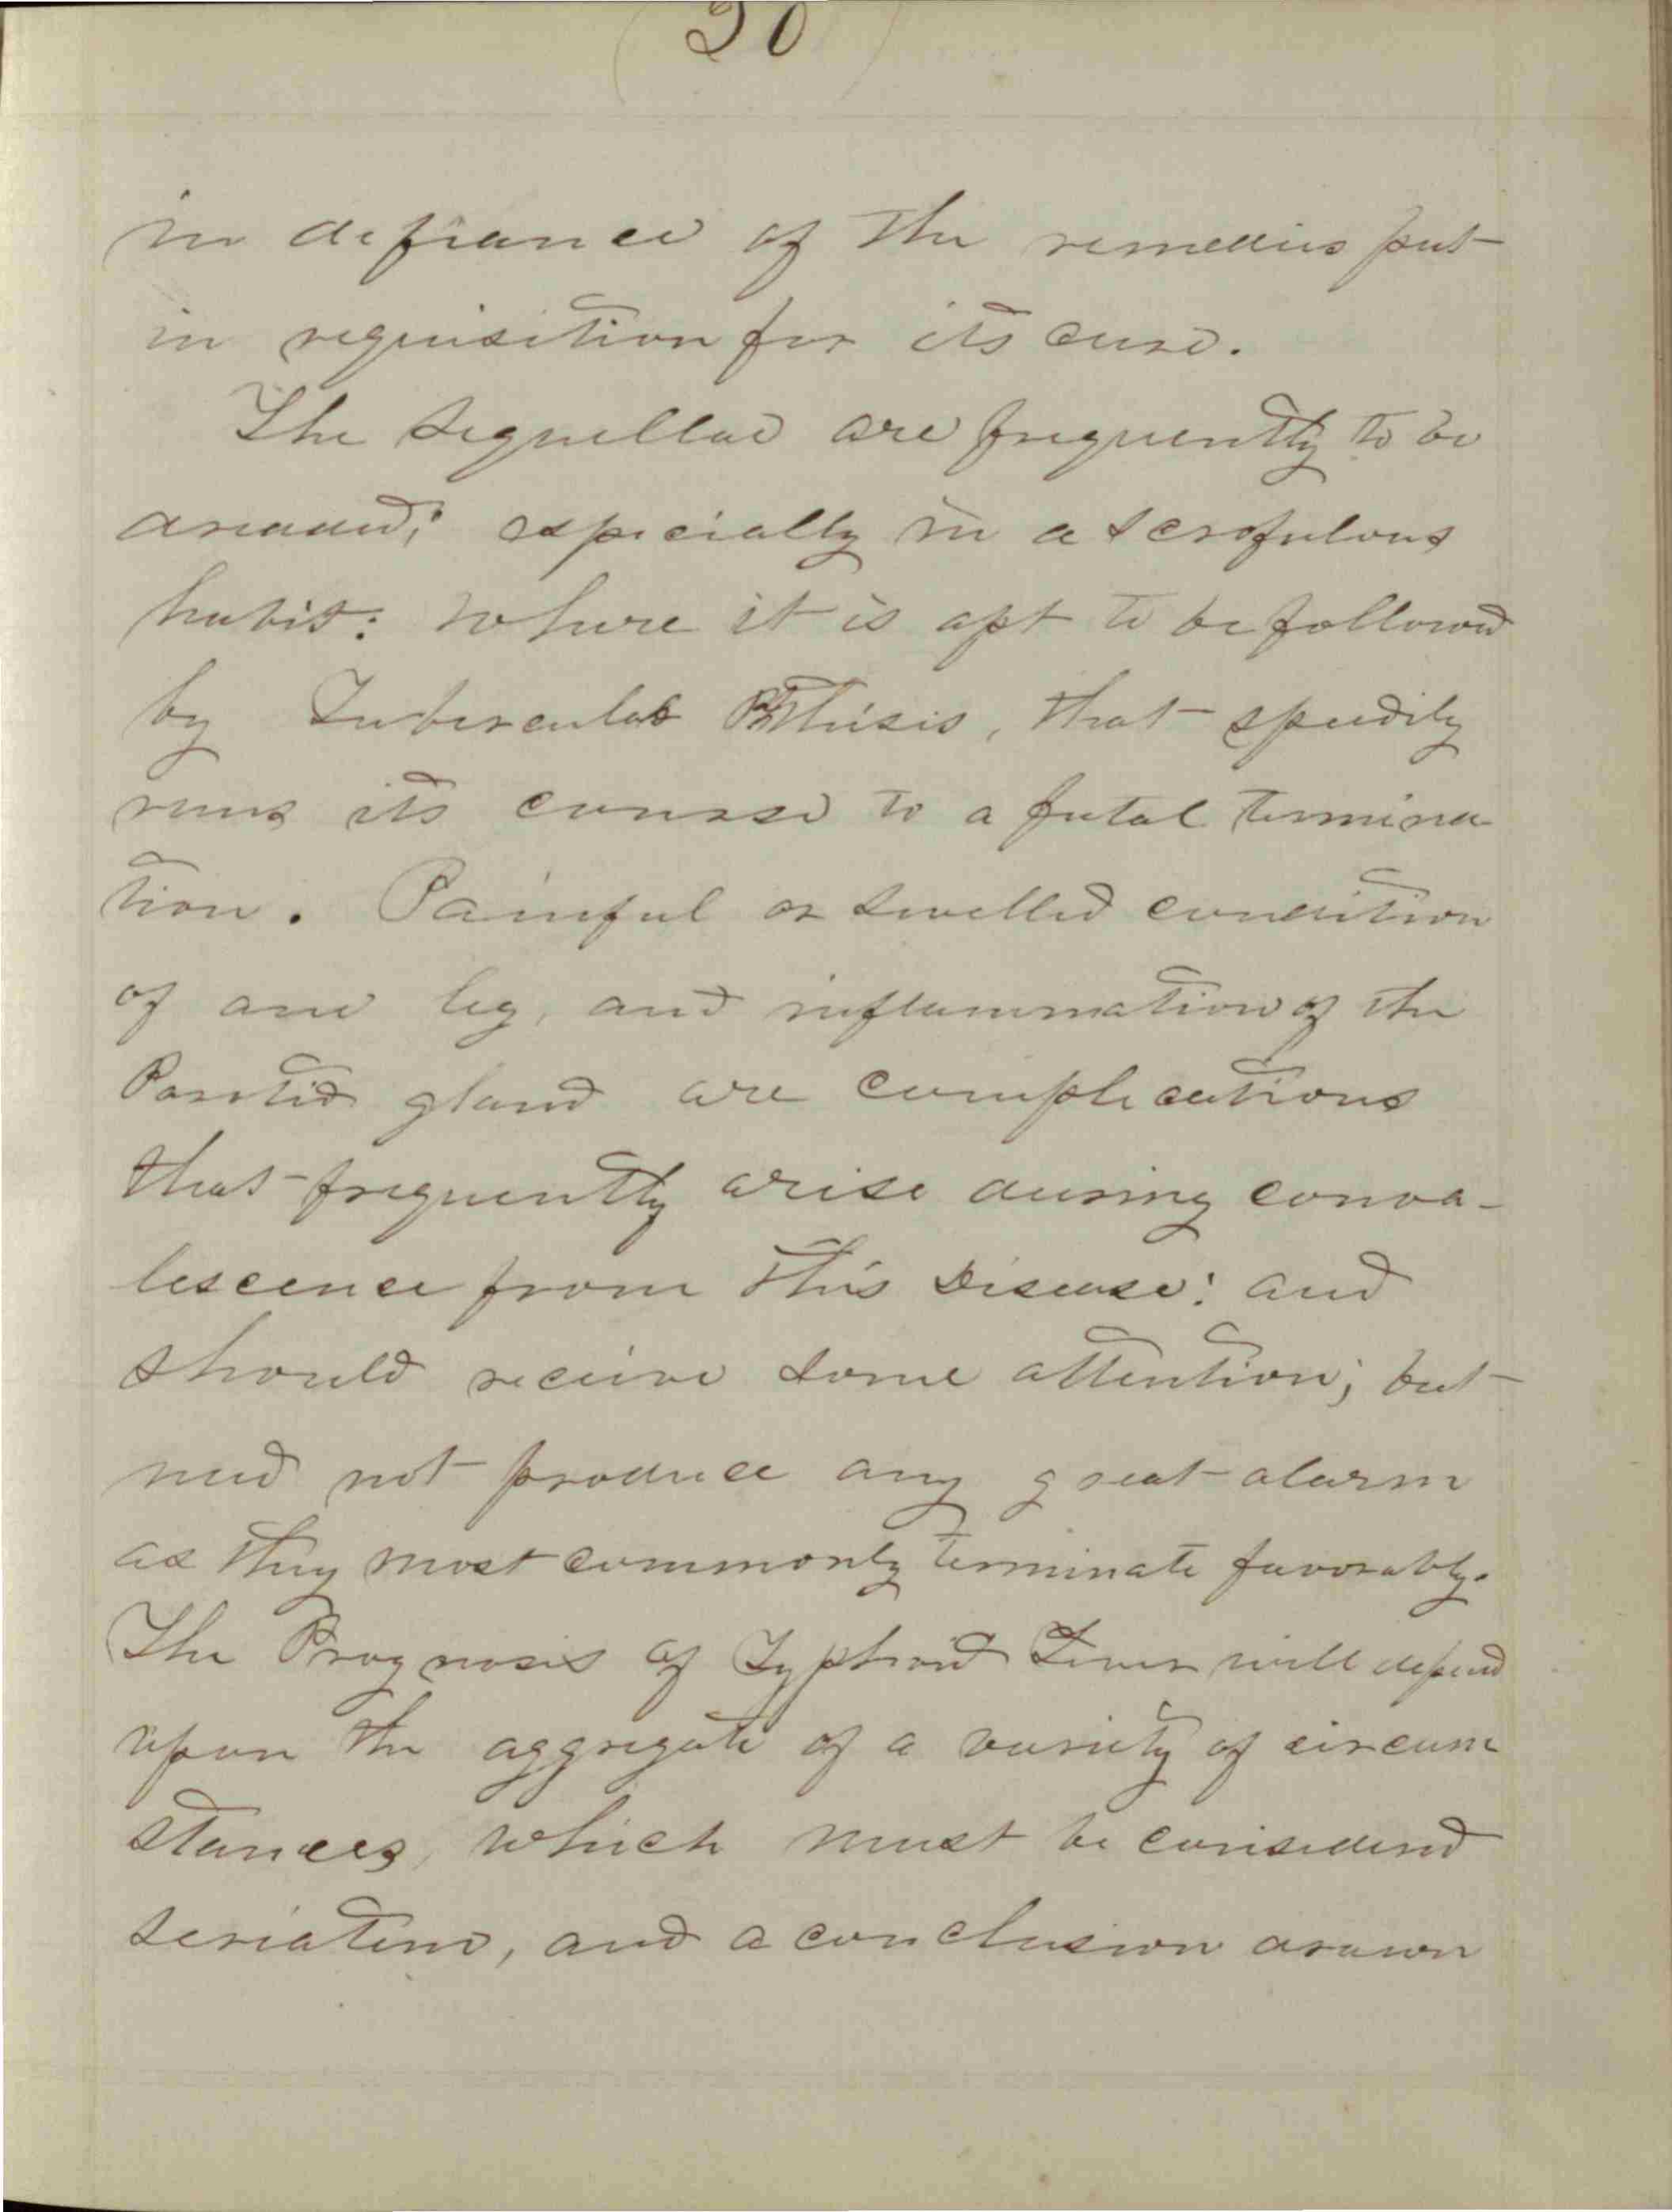 in defiance of the remedies put
in requisition for its cure.
The sequellae are frequently to be
dreaded; especially in a scrofulous
habit: where it is apt to be followed
by Tubercular Phthisis, that speedily
runs its course to a fatal termina
tion. Painful or swelled condition
of one leg, and inflammation of the
Parotid gland are complications
that frequently arise during conva-
lescence from this Disease: and
should receive some attention; but
need not produce any great alarm
as they most commonly terminate favorably.
The Prognosis of Typhoid Fever will depend
upon the aggregate of a variety of circum
stances, which must be considered
seriatim, and a conclusion drawn